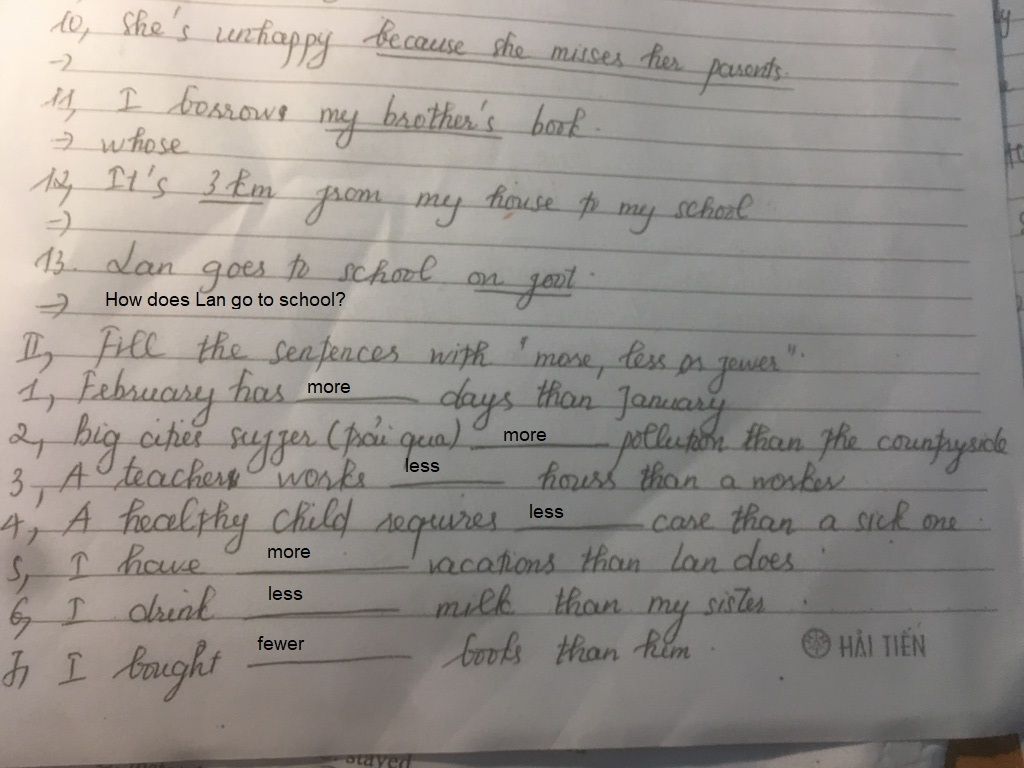 10, She's unhappy because she misses her parents.
→
11, I borrows my brother's book.
⇒ whose
12, It's 3 km from my house to my school
⇒)
13. Lan goes to school on foot.
⇒ How does Lan go to school?
II, Fill the sentences with "more, less or fewer".
1, February has more days than January
2, Big cities suffer (trải qua) more pollution than the countryside
3, A teachers works less hours than a worker
4, A healthy child requires less care than a sick one.
5, I have more vacations than Lan does.
6, I drink less milk than my sister.
7, I bought fewer books than him.
HẢI TIẾN
stayed